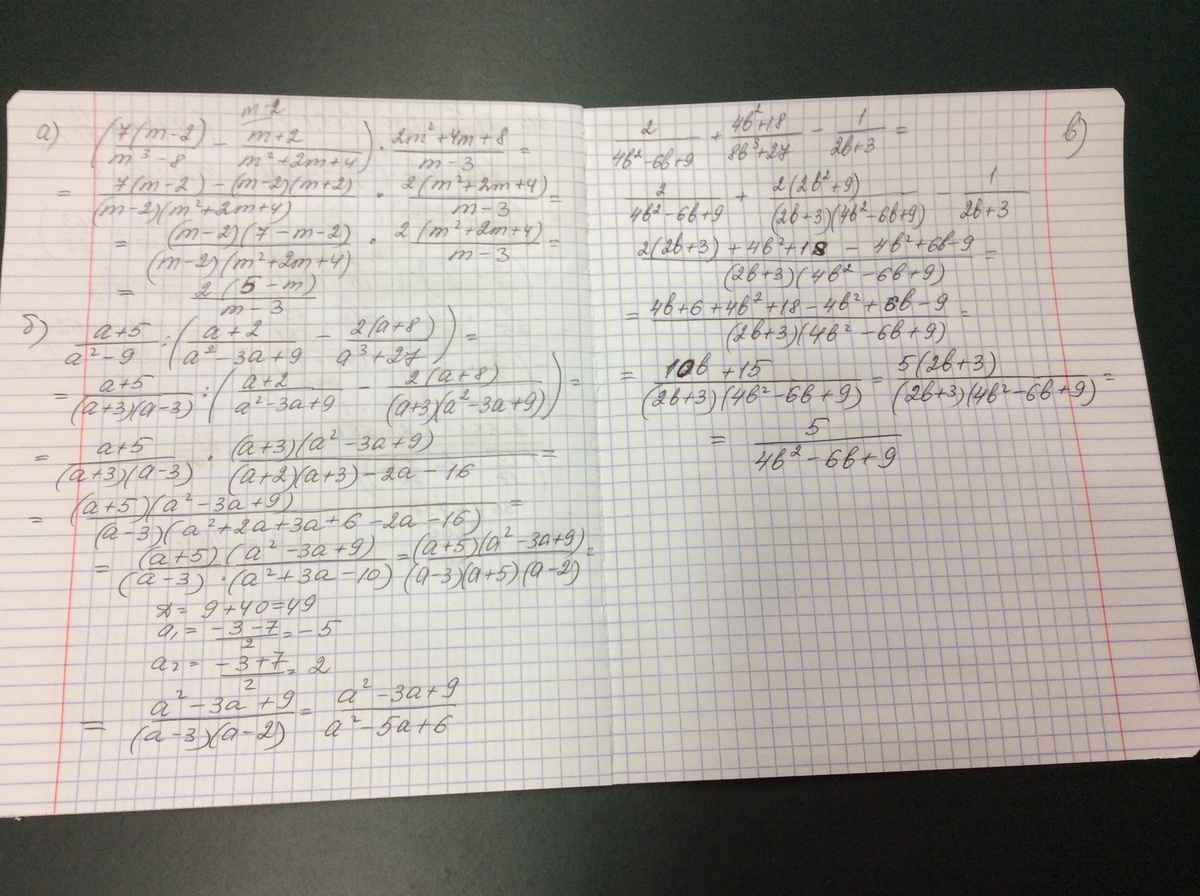 m-2
а) (7(m-2)/(m³-8) - (m+2)/(m²+2m+4)) · (2m²+4m+8)/(m-3) =
= (7(m-2)-(m-2)(m+2))/((m-2)(m²+2m+4)) · 2(m²+2m+4)/(m-3) =
= (m-2)(7-m-2)/((m-2)(m²+2m+4)) · 2(m²+2m+4)/(m-3) =
= 2(5-m)/(m-3)
б) (a+5)/(a²-9) : ((a+2)/(a²-3a+9) - 2(a+8)/(a³+27)) =
= (a+5)/((a+3)(a-3)) : ((a+2)/(a²-3a+9) - 2(a+8)/((a+3)(a²-3a+9))) =
= (a+5)/((a+3)(a-3)) · (a+3)(a²-3a+9)/((a+2)(a+3)-2a-16) =
= (a+5)(a²-3a+9)/((a-3)(a²+2a+3a+6-2a-16)) =
= (a+5)(a²-3a+9)/((a-3)·(a²+3a-10)) = (a+5)(a²-3a+9)/((a-3)(a+5)(a-2)) =
D = 9+40=49
a₁ = (-3-7)/2 = -5
a₂ = (-3+7)/2 = 2
= (a²-3a+9)/((a-3)(a-2)) = (a²-3a+9)/(a²-5a+6)
в) 2/(4b²-6b+9) + (4b²+18)/(8b³+27) - 1/(2b+3) =
2/(4b²-6b+9) + 2(2b²+9)/((2b+3)(4b²-6b+9)) - 1/(2b+3)
(2(2b+3)+4b²+18-4b²+6b-9)/((2b+3)(4b²-6b+9)) =
= (4b+6+4b²+18-4b²+6b-9)/((2b+3)(4b²-6b+9)) =
= (10b+15)/((2b+3)(4b²-6b+9)) = 5(2b+3)/((2b+3)(4b²-6b+9)) =
= 5/(4b²-6b+9)